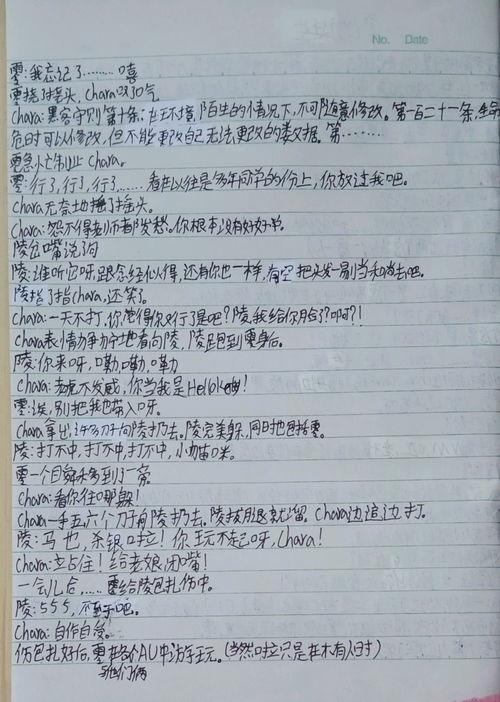 No.    Date
零:我忘记了………嘻
零挠挠头,Chara叹口气
Chara:黑客守则第十条:在环境陌生的情况下,不可随意修改。第一百二十一条,生命
危时可以修改,但不能更改自己无法更改的数据。第………
零急忙制止Chara。
零:行了,行了,行了……看在以往是多年同学的份上,你放过我吧。
Chara无奈地摇了摇头。
Chara:怨不得老师都发愁。你根本没有好好学。
陵岔嘴说词
陵:谁听它呀,跟念经似得,还有你也一样,有空把头发剃当和尚去吧。
陵指了指chara,还笑了。
Chara:一天不打,你觉得你又行了是吧?陵,我给你脸了?啊?!
Chara表情狰狞地看向陵,陵跑到零身后。
陵:你来呀,嘞嘞,嘞
Chara:老虎不发威,你当我是Hellokitty!
零:诶,别把我也带入呀。
Chara拿出许多刀子向陵扔去。陵完美躲,同时也包括零。
陵:打不中,打不中,打不中,小猫咪。
零一个瞬移到了一旁。
Chara:看你往哪躲!
Chara一手五六个刀子向陵扔去。陵拔腿就溜。Chara边追边打。
陵:马也,杀银啦!你玩不起呀,Chara!
Chara:站住!给老娘闭嘴!
一会儿后,……零给陵包扎伤中。
陵:555,不至于吧。
Chara:自作自受。
伤包扎好后,零在各个AU中访于玩。(当然啦只是在木有人时)
与他们俩